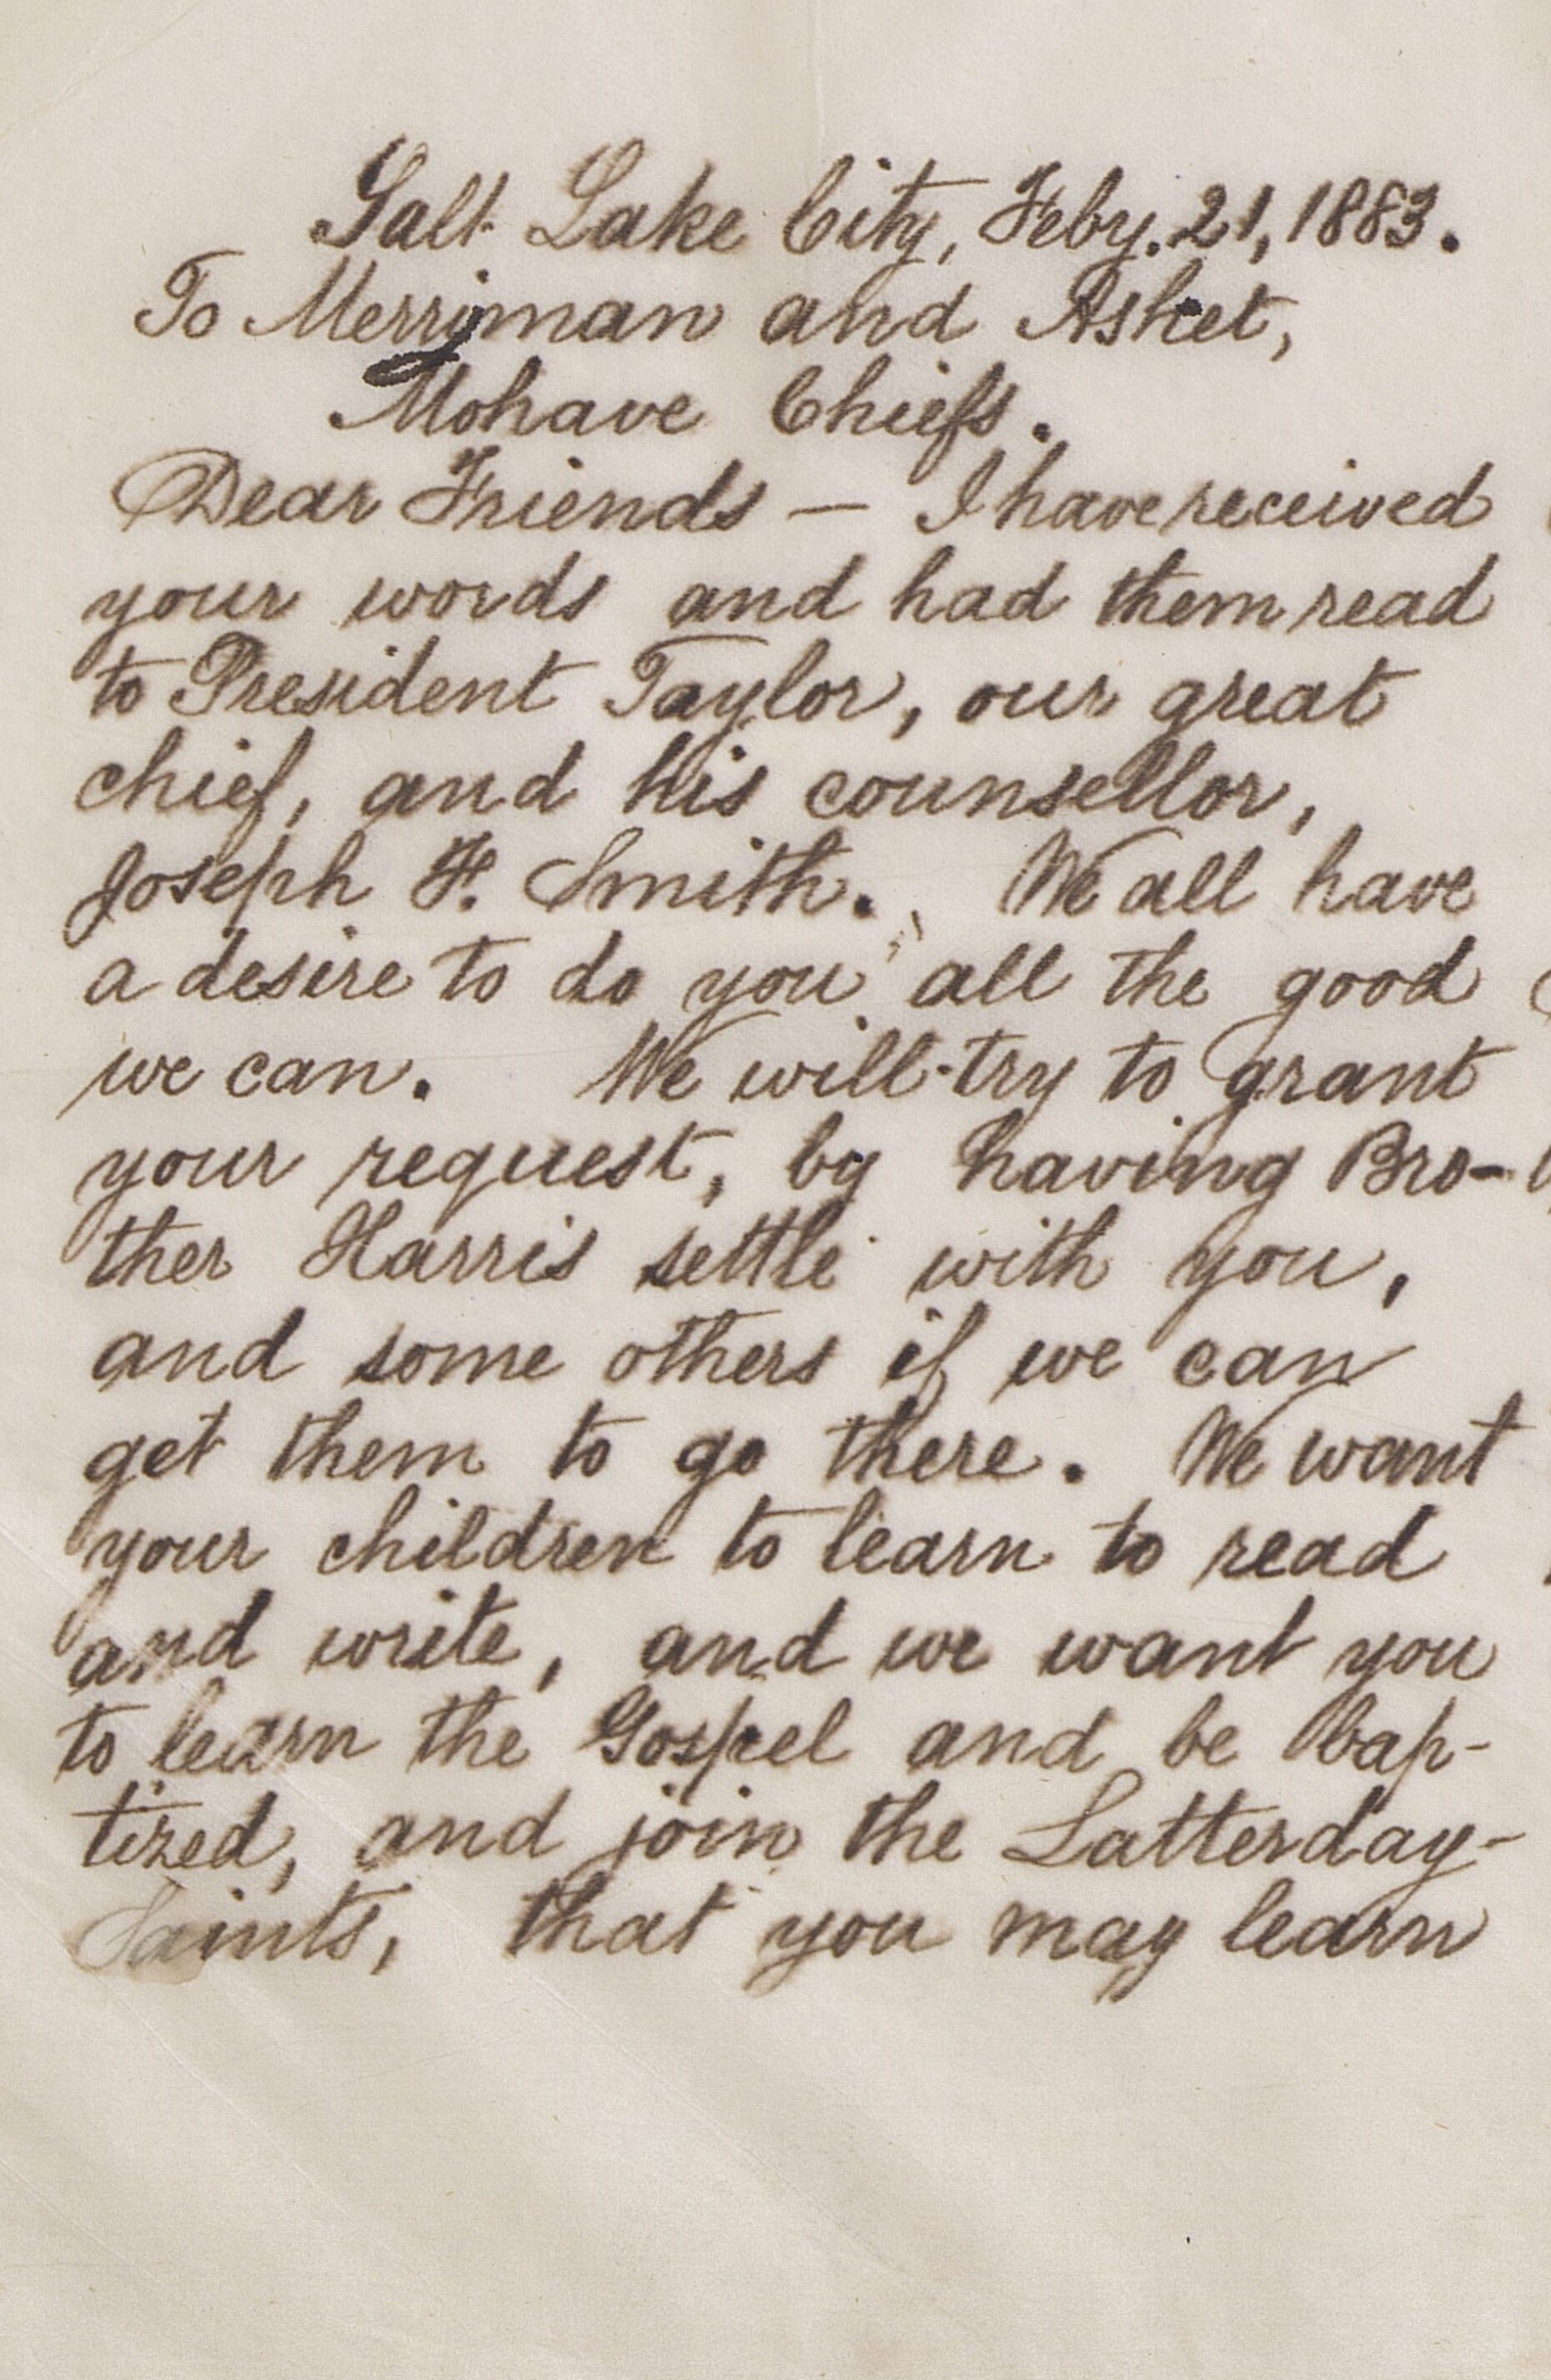 Salt Lake City, Feby. 21, 1883.
To Merriman and Asket,
Mohave Chiefs.
Dear Friends — I have received
your words and had them read
to President Taylor, our great
chief, and his counsellor,
Joseph F. Smith. We all have
a desire to do you all the good
we can. We will try to grant
your request, by having Bro-
ther Harris settle with you,
and some others if we can
get them to go there. We want
your children to learn to read
and write, and we want you
to learn the Gospel and be bap-
tized, and join the Latterday-
Saints, that you may learn